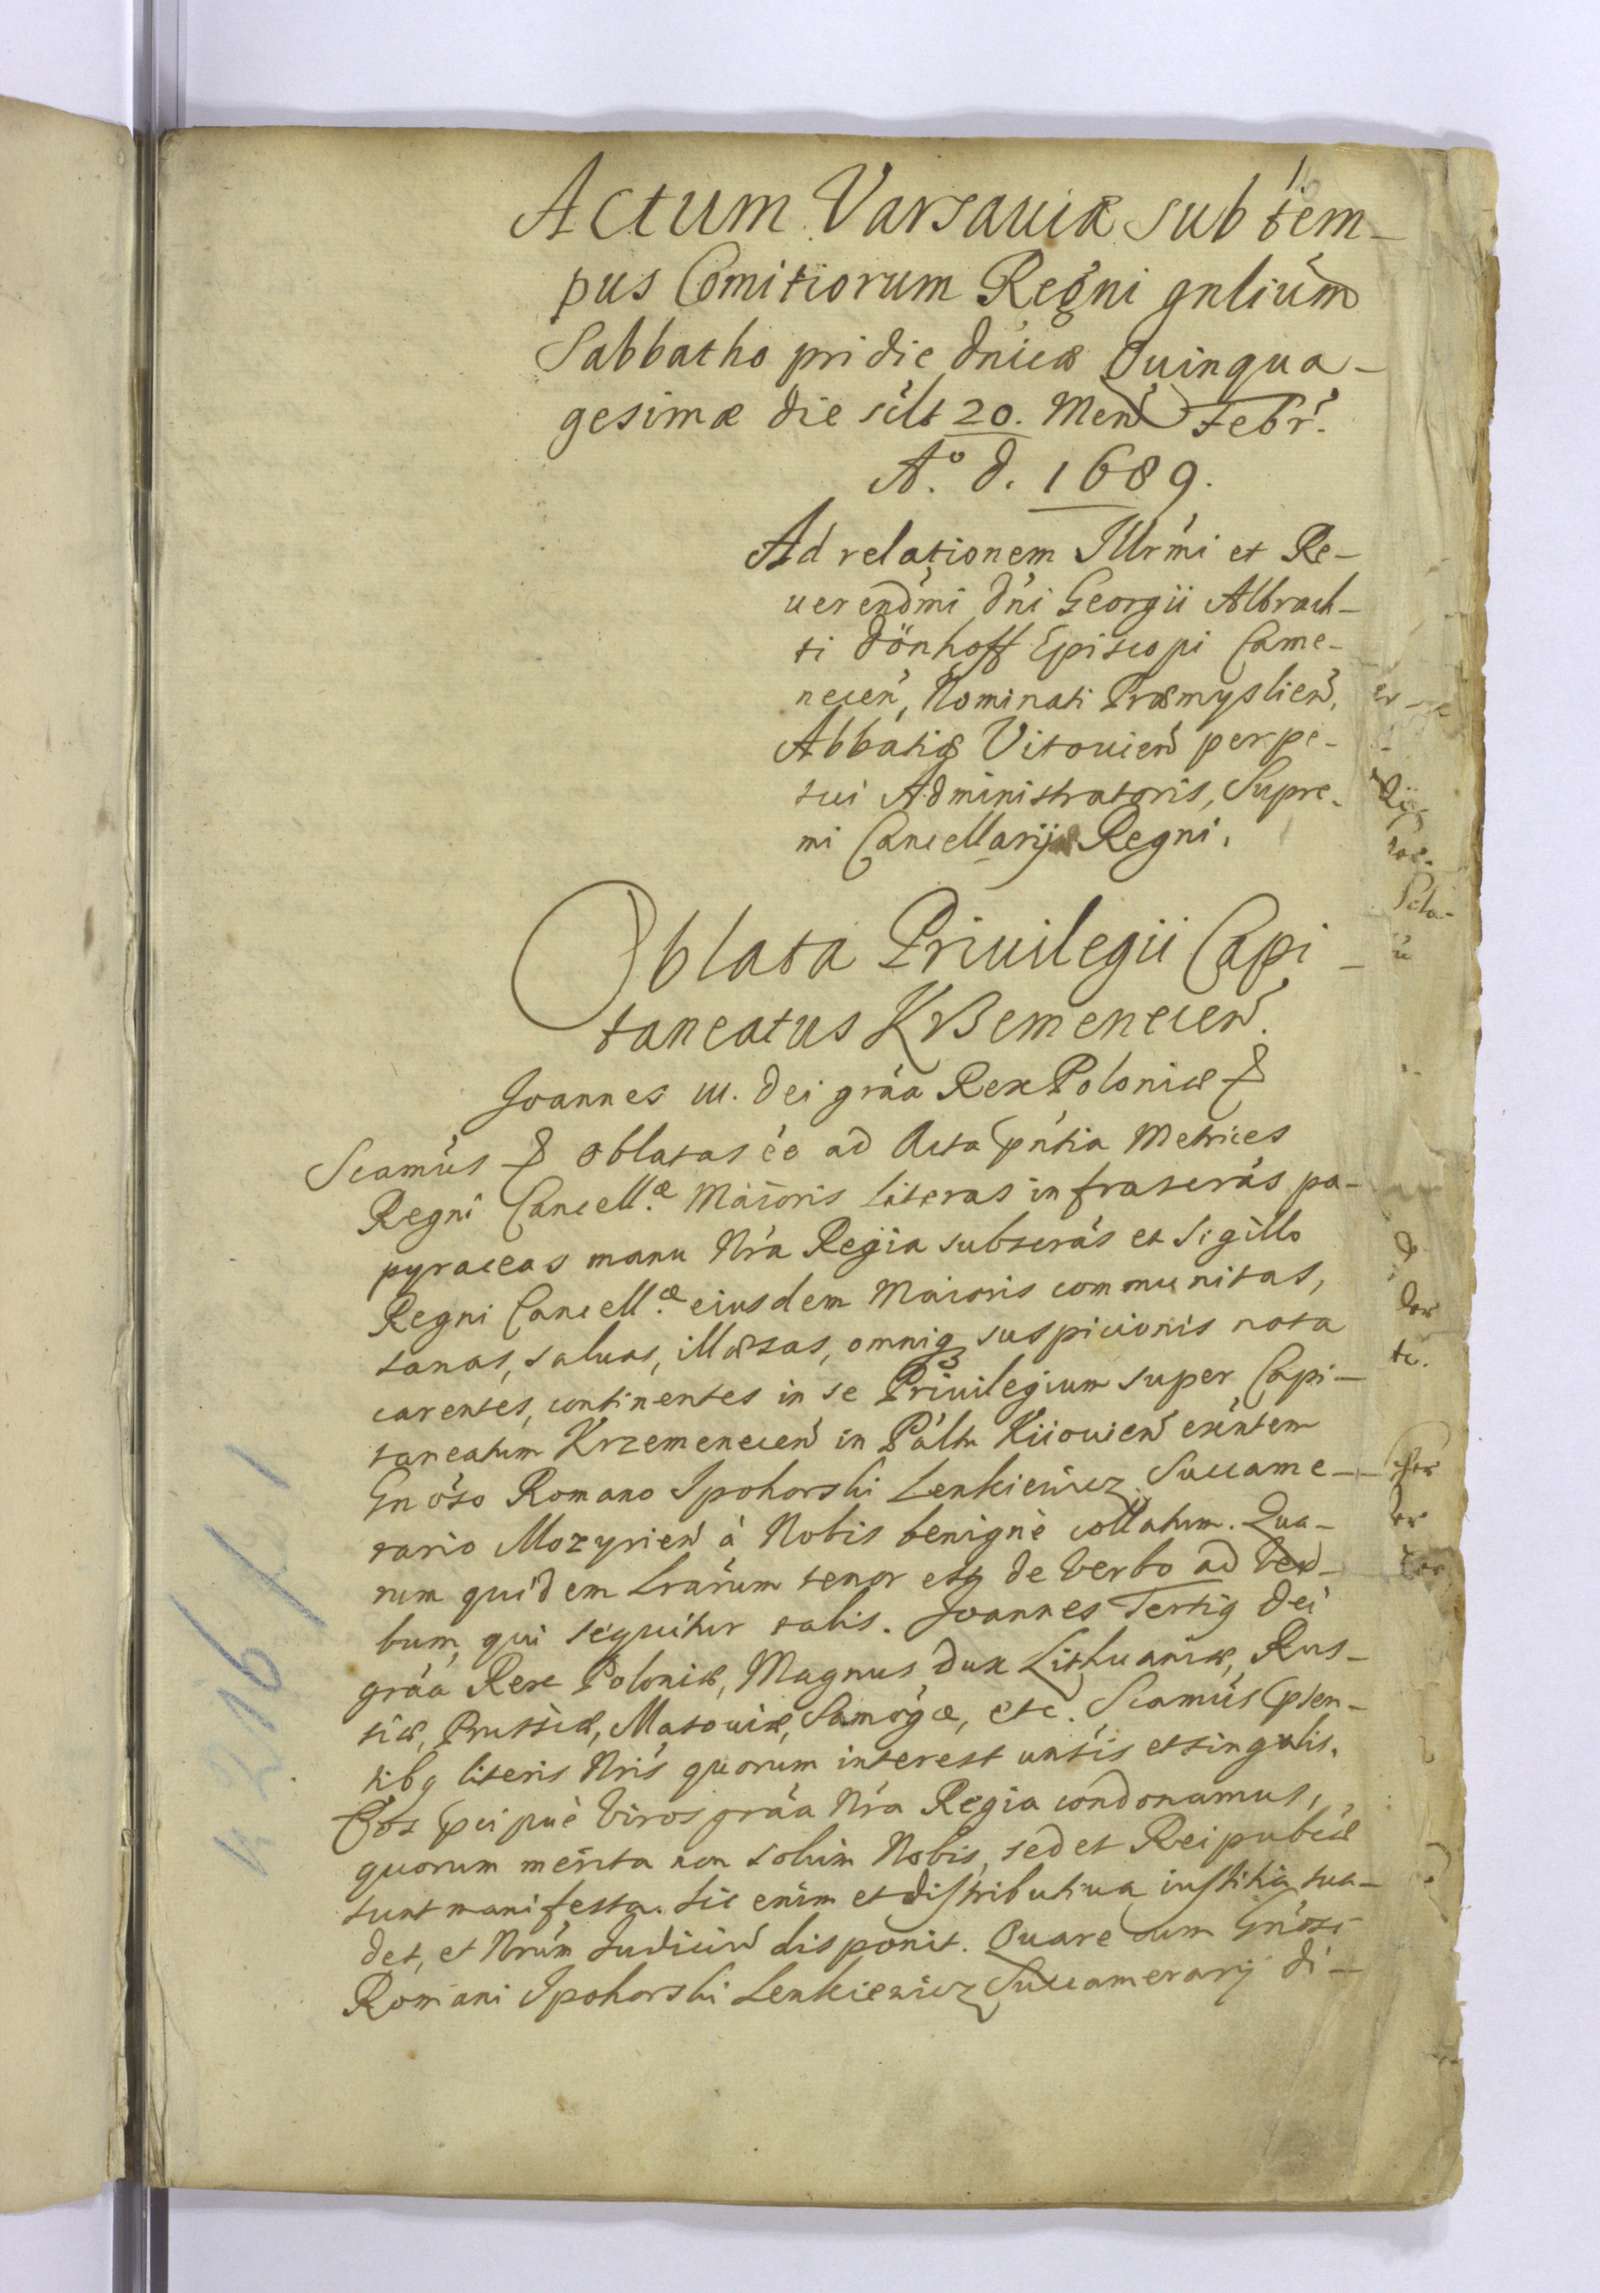 Actum Varsauiæ sub tem-
pus Comitiorum Regni gnlium
Sabbatho pridie dnicæ Quinqua-
gesimæ die silt 20. Men Febr.
A.º d. 1689.
Ad relationem Illrmi et Re-
uerendmi dni Georgii Albrach-
ti Dönhoff Episcopi Came-
necen, Nominati Præmyslien,
Abbatiæ Vitouien perpe-
tui Administratoris, Supre-
mi Cancellarij Regni.
Oblata Priuilegii Capi-
taneatus Krzemenecen.
Joannes III. Dei gráa Rex Poloniæ
Scamus oblatas ée ad Acta pntia Metrices
Regni Cancell.æ Maioris literas infrascrás pa-
pyraceas manu Nrá Regia subscrás et Sigillo
Regni Cancell.æ eiusdem Maioris communitas,
sanas, saluas, illæsas, omniq suspicionis nota
carentes, continentes in se Priuilegium super Capi-
taneatum Krzemenecen in Paltu Kiiouien exéntem
Gnóso Romano Ipohorski Lenkiewicz Succame-
rario Mozyrien à Nobis benignè collatum. Qua-
rum quidem Lrarum tenor est de verbo ad ver-
bum, qui sequitur talis. Joannes Tertiq Dei
gráa Rex Poloniæ, Magnus Dux Lithuaniæ, Rus-
siæ, Prussiæ, Masouiæ, Samogæ, etc. Scamus Psen-
tibq literis Nris quorum interest unsis et singulis.
Eos pcipuè viros gráa Nrá Regia condonamus,
quorum merita non solum Nobis, sed et Reipublcæ
sunt manifesta. Sic enim et distributiua iustitia sua-
det, et Nrum Iudicium disponit. Quare cum Gnosi
Romani Ipohorski Lenkiewicz Succamerarij di-